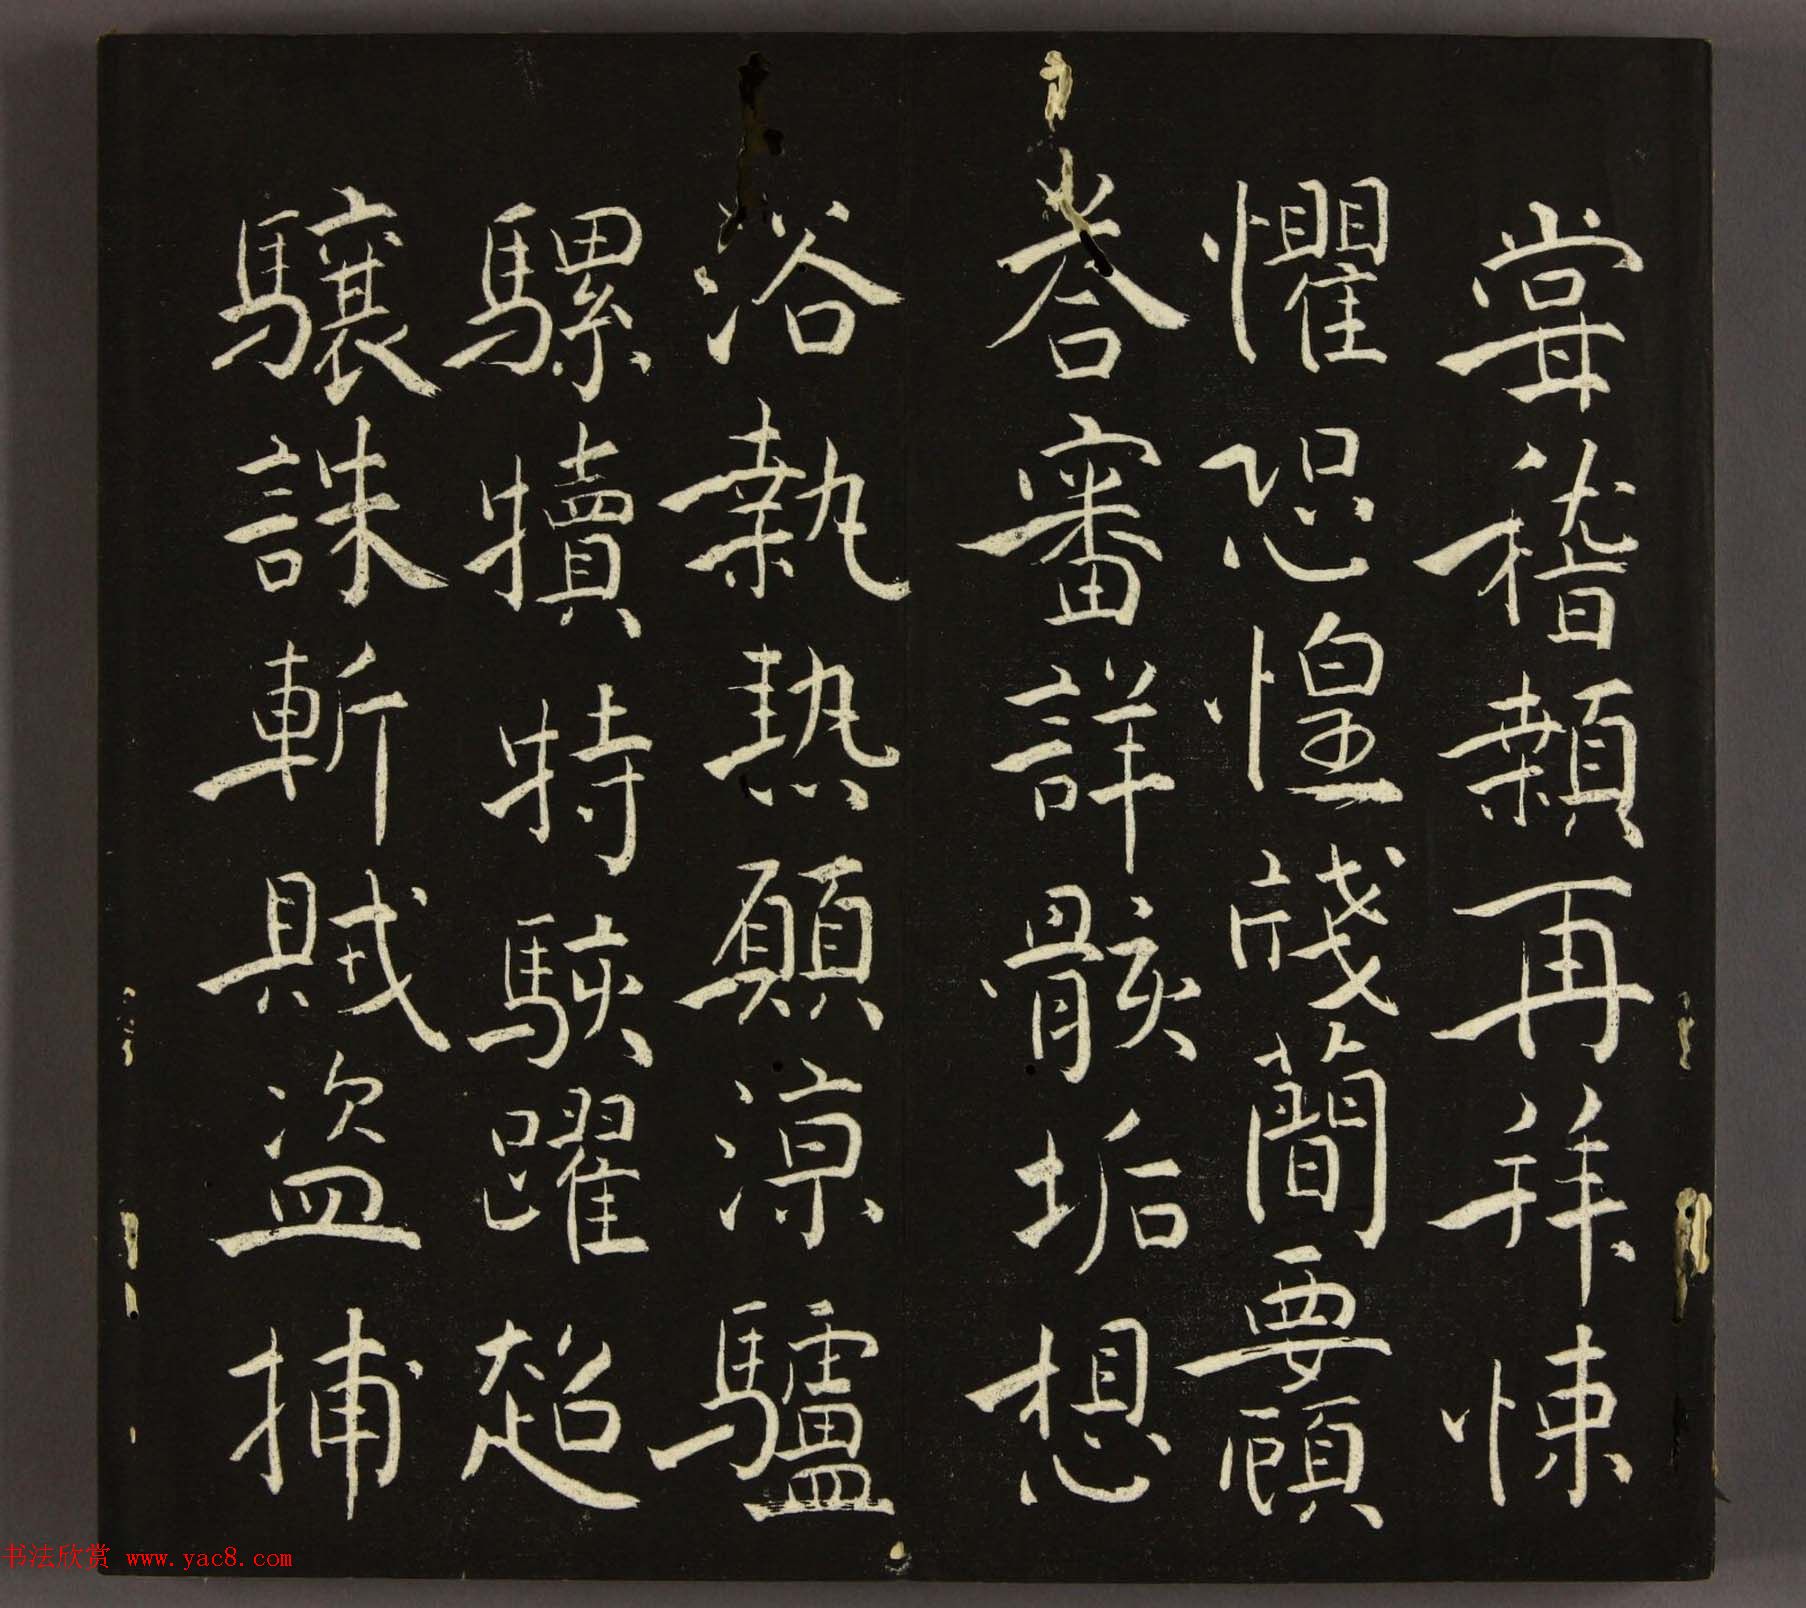 甞稽顙再拜悚
懼恐惶牋簡要顧
荅審詳骸垢想
浴執熱願涼驢
騾犢特駭躍超
驤誅斬賊盗捕
书法欣赏 www.yac8.com